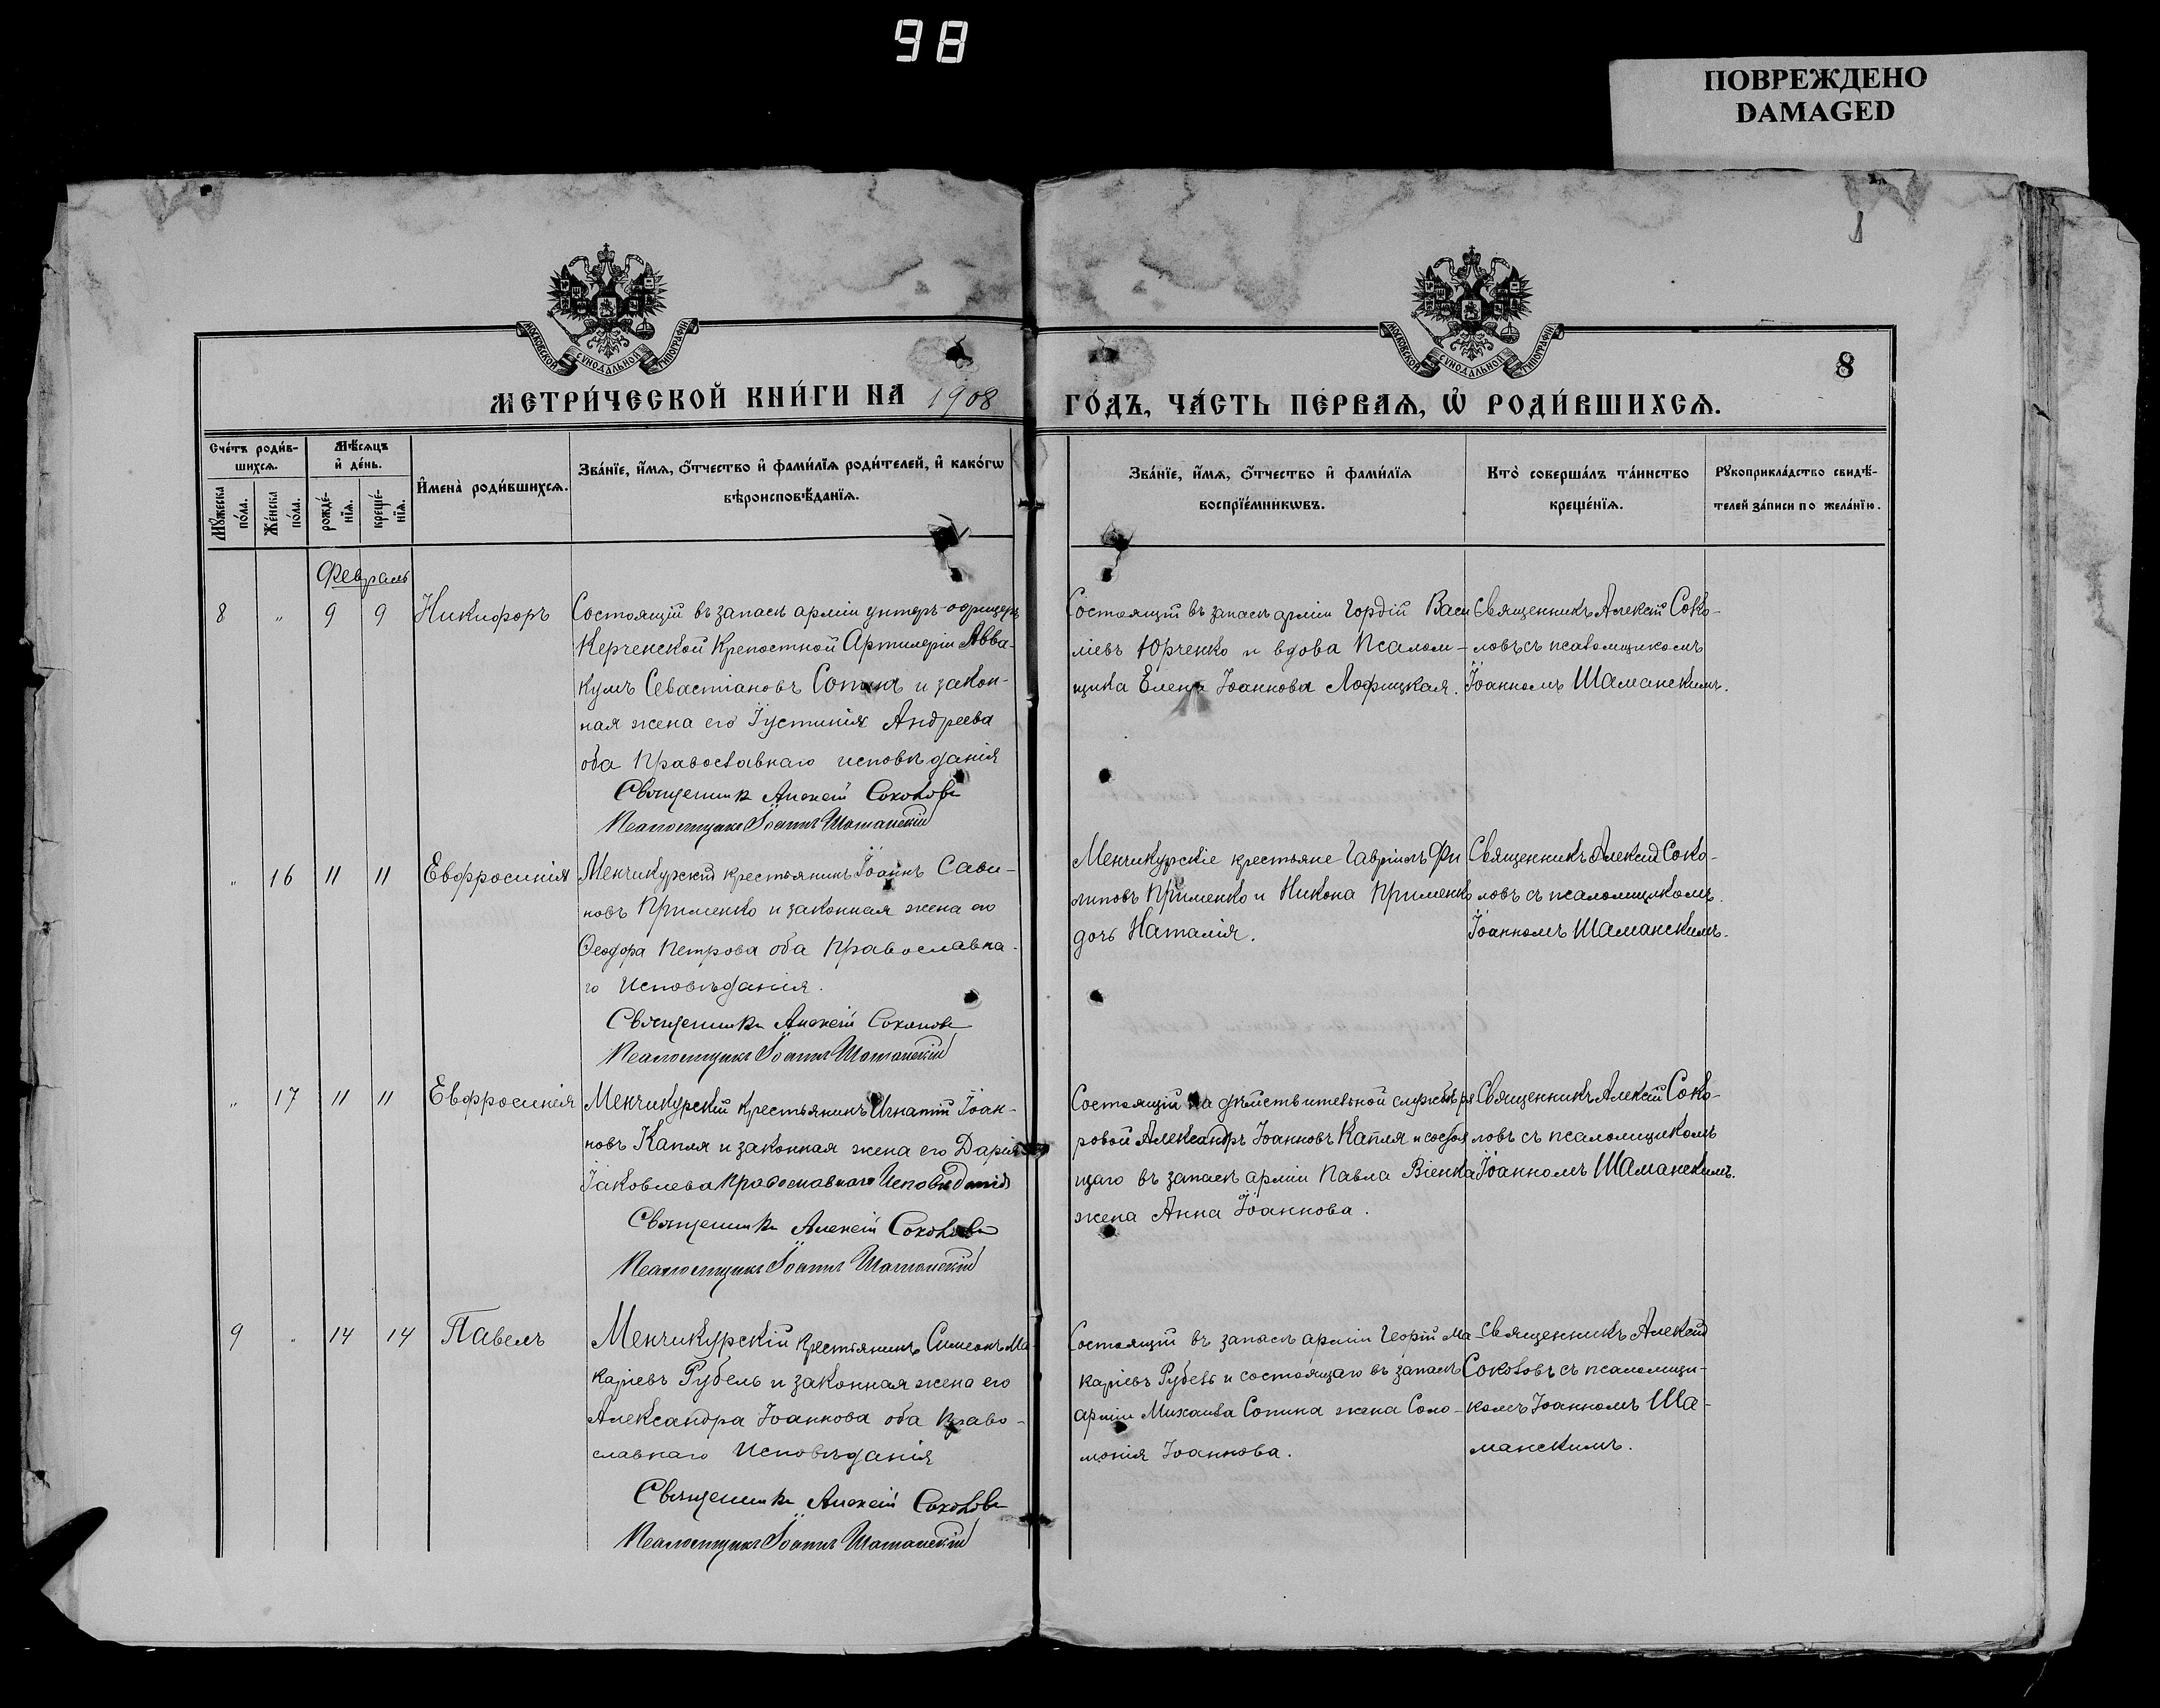 98
ПОВРЕЖДЕНО
DAMAGED
МОСКОВСКОЙ СѴНОДАЛЬНОЙ ТИПОГРАФІИ
МОСКОВСКОЙ СѴНОДАЛЬНОЙ ТИПОГРАФІИ
8
МЕТРИ́ЧЕСКОЙ КНИ́ГИ НА 1908
ГО́ДЪ, ЧА́СТЬ ПЕ́РВАѦ, Ѡ҆ РОДИ́ВШИХСѦ.
Сче́тъ роди́в-
шихсѧ.
Мѣ́сѧцъ
и҆ де́нь.
Мꙋ́жеска
по́ла.
Же́нска
по́ла.
рожде́-
нїѧ.
креще́-
нїѧ.
И҆мена̀ роди́вшихсѧ.
Зва́нїе, и҆́мѧ, ѻ҆́тчество и҆ фами́лїѧ роди́телей, и҆ како́гѡ
вѣроисповѣ́данїѧ.
Зва́нїе, и҆́мѧ, ѻ҆́тчество и҆ фами́лїѧ
воспрїе́мникѡвъ.
Кто̀ соверша́лъ та́инство
креще́нїѧ.
Рꙋкоприкла́дство свидѣ́-
телей за́писи по жела́нїю.
Февраль
8 " 9 9 Никифоръ
Состоящій въ запасѣ арміи унтеръ-офицеръ
Керченской Крепостной Артилеріи Авва-
кумъ Севастіановъ Сопинъ и закон-
ная жена его Іустинія Андреева
оба Православнаго исповѣданія
Священникъ Алексій Соколовъ
Псаломщикъ Іоаннъ Шаманскій
Состоящій въ запасѣ арміи Гордій Васи
ліевъ Юрченко и вдова Псалом-
щика Елена Іоаннова Лофицкая.
Священникъ Алексій Соко-
ловъ съ псаломщикомъ
Іоанномъ Шаманскимъ.
" 16 11 11 Евфросинія
Менчикурскій крестьянинъ Іоаннъ Сави-
новъ Применко и законная жена его
Ѳеодора Петрова оба Православна-
го Исповѣданія.
Священникъ Алексій Соколовъ
Псаломщикъ Іоаннъ Шаманскій
Менчикурскіе крестьяне Гавріилъ Фи
липовъ Применко и Никона Применко
дочь Наталія.
Священникъ Алексій Соко-
ловъ съ псаломщикомъ
Іоанномъ Шаманскимъ.
" 17 11 11 Евфросинія
Менчикурскій крестьянинъ Игнатій Іоан-
новъ Капля и законная жена его Дарія
Іаковлева Православнаго Исповѣданія
Священникъ Алексій Соколовъ
Псаломщикъ Іоаннъ Шаманскій
Состоящій на дѣйствительной службѣ ря
ровой Александръ Іоанновъ Капля и состоя
щаго въ запасѣ арміи Павла Віенка
жена Анна Іоаннова.
Священникъ Алексій Соко-
ловъ съ псаломщикомъ
Іоанномъ Шаманскимъ.
9 " 14 14 Павелъ
Менчикурскій крестьянинъ Симеонъ Ма-
каріевъ Рубель и законная жена его
Александра Іоаннова оба Право-
славнаго Исповѣданія
Священникъ Алексій Соколовъ
Псаломщикъ Іоаннъ Шаманскій
Состоящій въ запасѣ арміи Георгій Ма-
каріевъ Рубель и состоящаго въ запасѣ
арміи Михаила Сопина жена Соло-
монія Іоаннова.
Священникъ Алексій
Соколовъ съ псаломщи-
комъ Іоанномъ Ша-
манскимъ.